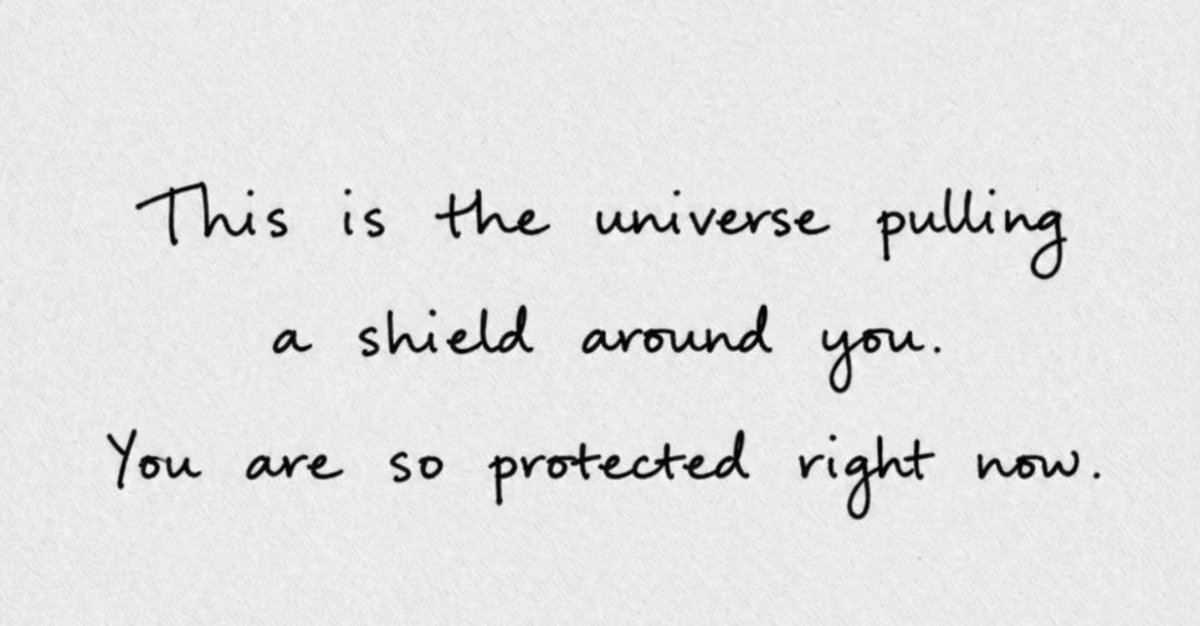 This is the universe pulling
a shield around you.
You are so protected right now.